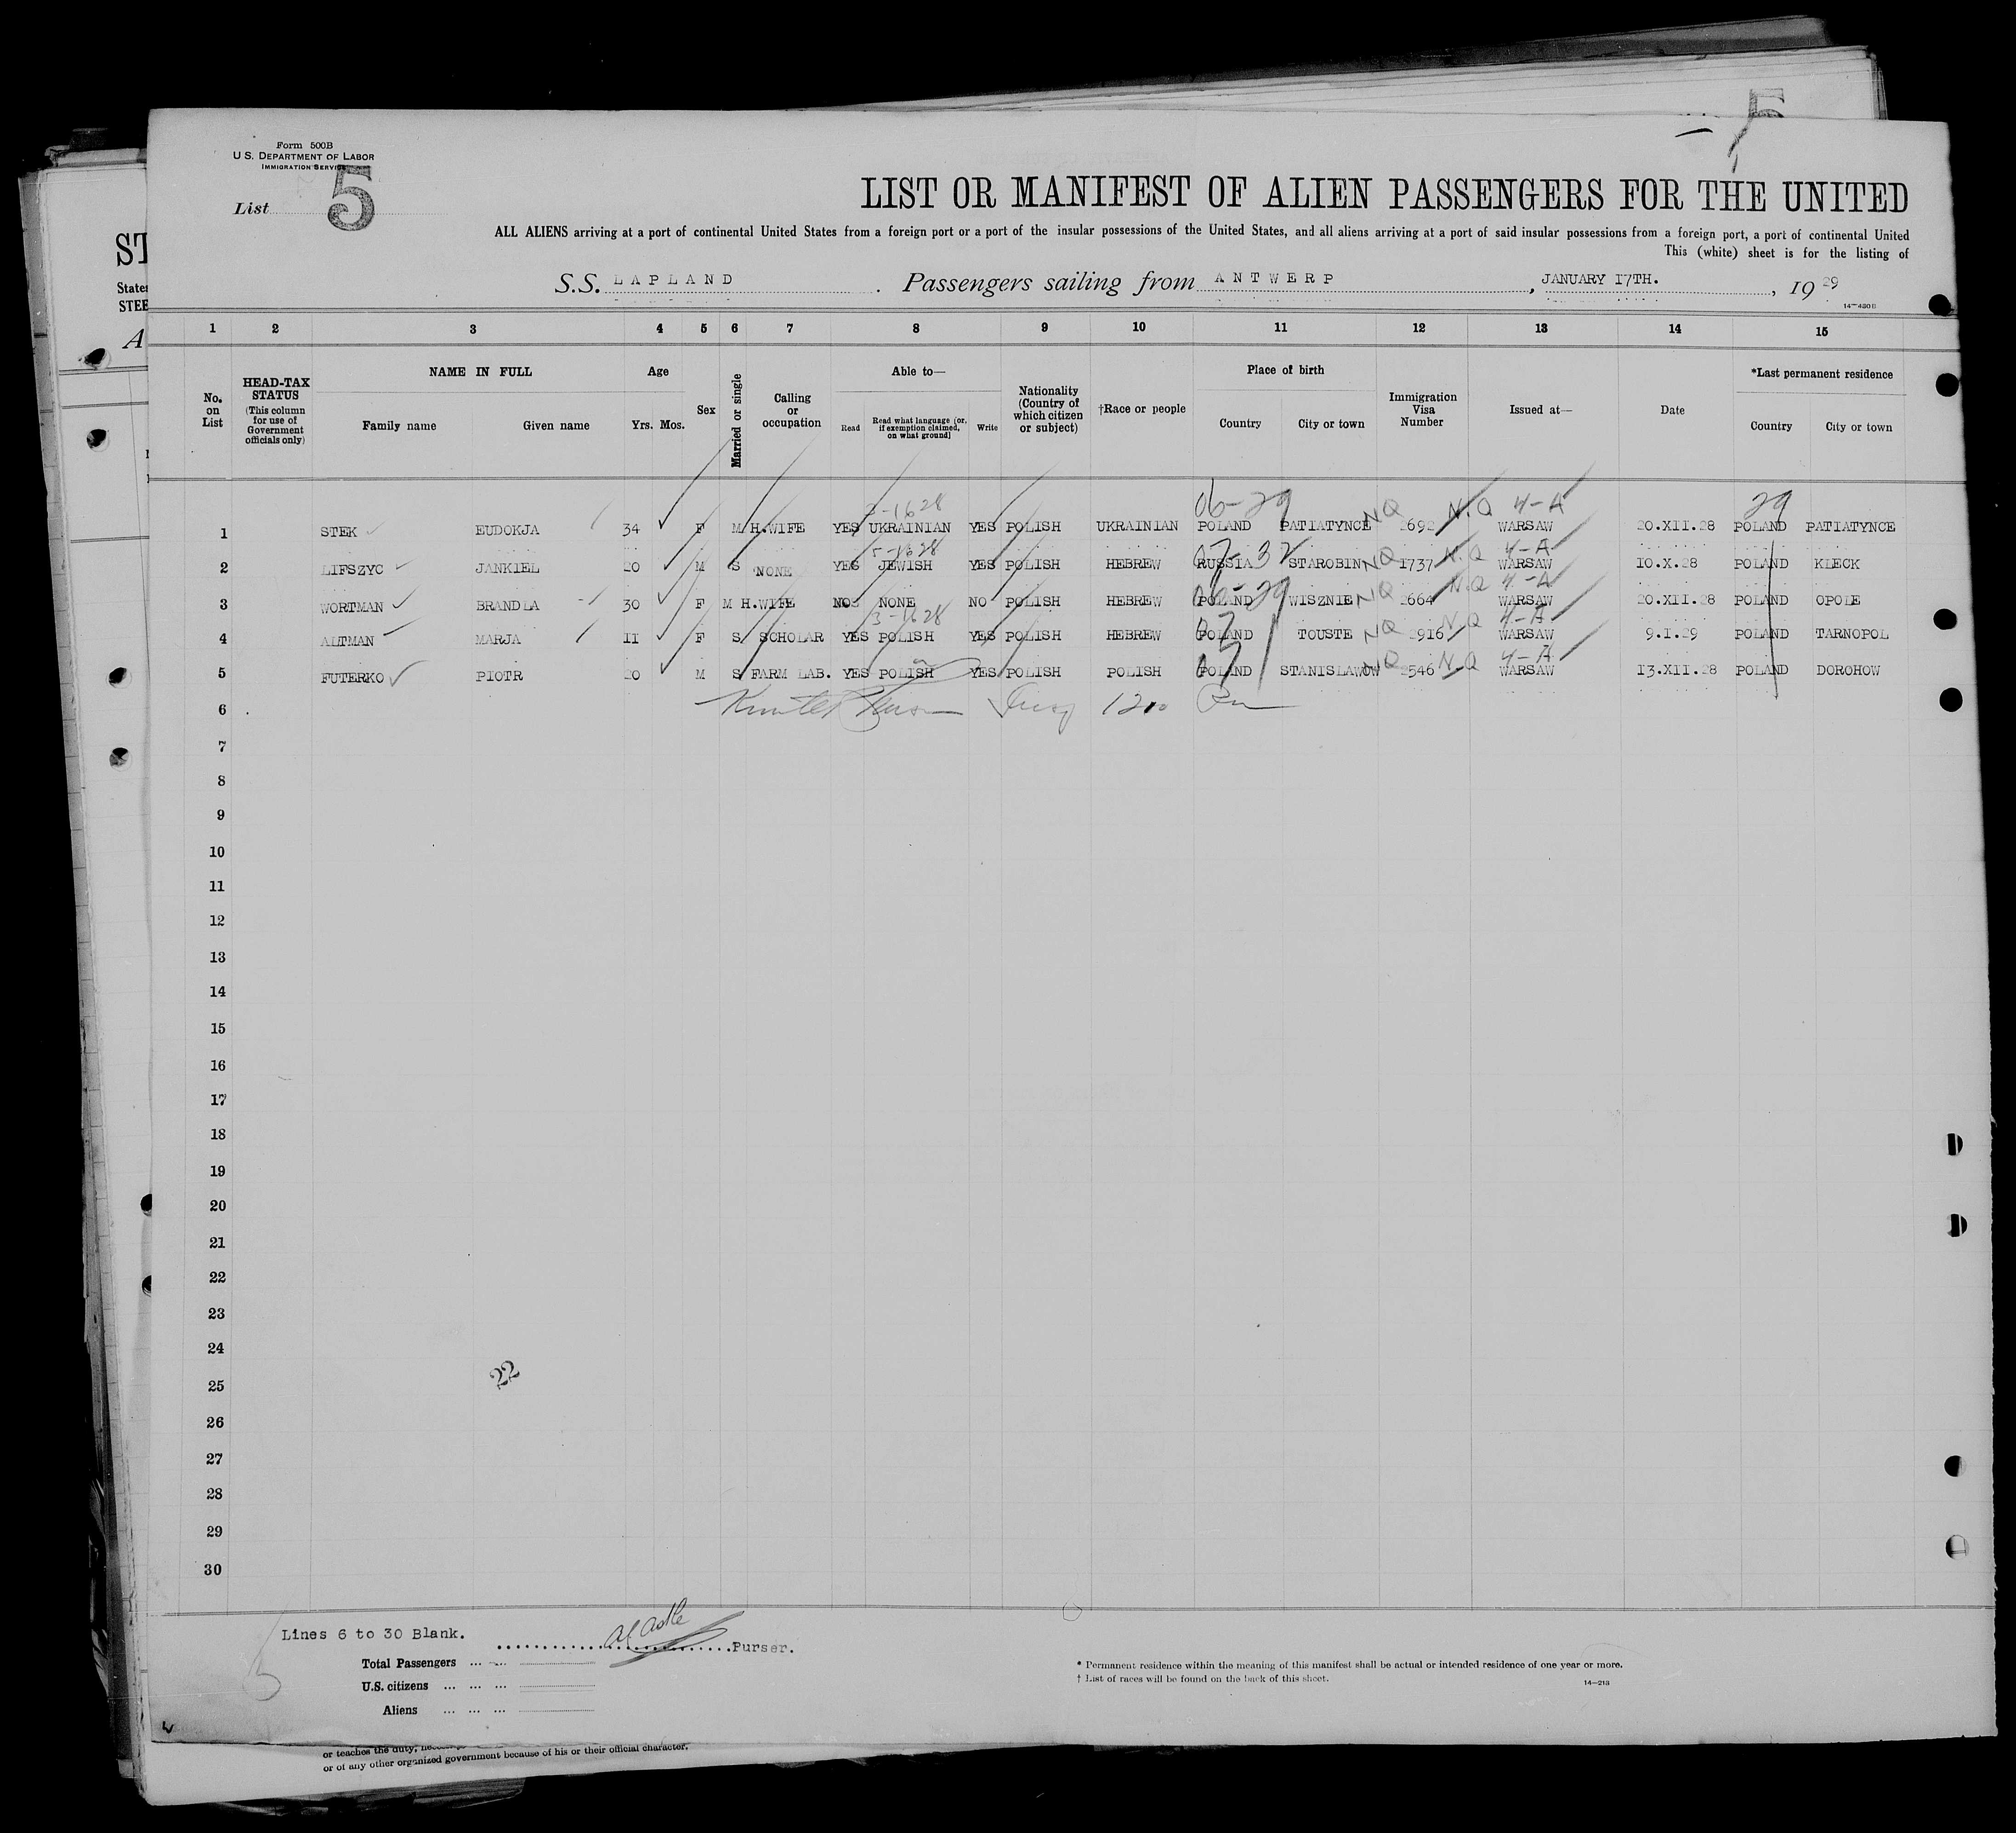 Form 500B
U.S. DEPARTMENT OF LABOR
IMMIGRATION SERVICE
List 5
5
LIST OR MANIFEST OF ALIEN PASSENGERS FOR THE UNITED
ALL ALIENS arriving at a port of continental United States from a foreign port or a port of the insular possessions of the United States, and all aliens arriving at a port of said insular possessions from a foreign port, a port of continental United
This (white) sheet is for the listing of
S.S. LAPLAND. Passengers sailing from ANTWERP, JANUARY 17TH., 1929
1 2 3 4 5 6 7 8 9 10 11 12 13 14 15
No. on List
HEAD-TAX STATUS (This column for use of Government officials only)
NAME IN FULL
Family name Given name
Age
Yrs. Mos.
Sex
Married or single
Calling or occupation
Able to—
Read Read what language (or, if exemption claimed, on what ground) Write
Nationality (Country of which citizen or subject)
†Race or people
Place of birth
Country City or town
Immigration Visa Number
Issued at—
Date
*Last permanent residence
Country City or town
06-29 NQ N.Q 4-A 29
1 STEK EUDOKJA 34 F M H.WIFE YES UKRAINIAN YES POLISH UKRAINIAN POLAND PATIATYNCE 2692 WARSAW 20.XII.28 POLAND PATIATYNCE
5-1628 07-32 NQ N.Q 4-A
2 LIFSZYC JANKIEL 20 M S NONE YES JEWISH YES POLISH HEBREW RUSSIA STAROBIN 1737 WARSAW 10.X.28 POLAND KLECK
06-29 NQ N.Q 4-A
3 WORTMAN BRANDLA 30 F M H.WIFE NO NONE NO POLISH HEBREW POLAND WISZNIE 2664 WARSAW 20.XII.28 POLAND OPOLE
3-1628 07 NQ N.Q 4-A
4 ALTMAN MARJA 11 F S SCHOLAR YES POLISH YES POLISH HEBREW POLAND TOUSTE 2916 WARSAW 9.I.29 POLAND TARNOPOL
NQ N.Q 4-A
5 FUTERKO PIOTR 20 M S FARM LAB. YES POLISH YES POLISH POLISH POLAND STANISLAWOW 2546 WARSAW 13.XII.28 POLAND DOROHOW
6
7
8
9
10
11
12
13
14
15
16
17
18
19
20
21
22
23
24
22
25
26
27
28
29
30
Lines 6 to 30 Blank.
Purser.
Total Passengers
U.S. citizens
Aliens
* Permanent residence within the meaning of this manifest shall be actual or intended residence of one year or more.
† List of races will be found on the back of this sheet.
14—213
or of any other organized government because of his or their official character.